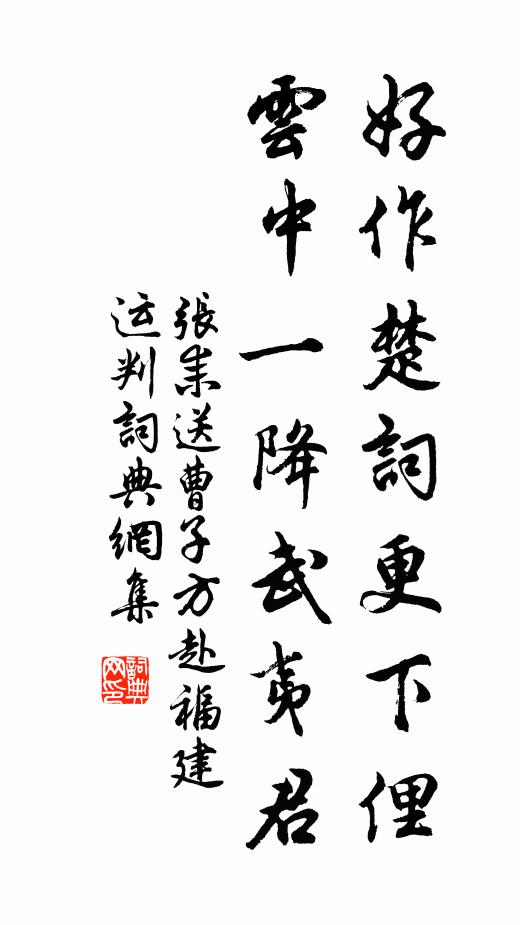 好作楚詞更下俚
雲中一降武夷君
張耒送曹子方赴福建
运判詞典網集
詞典
网印